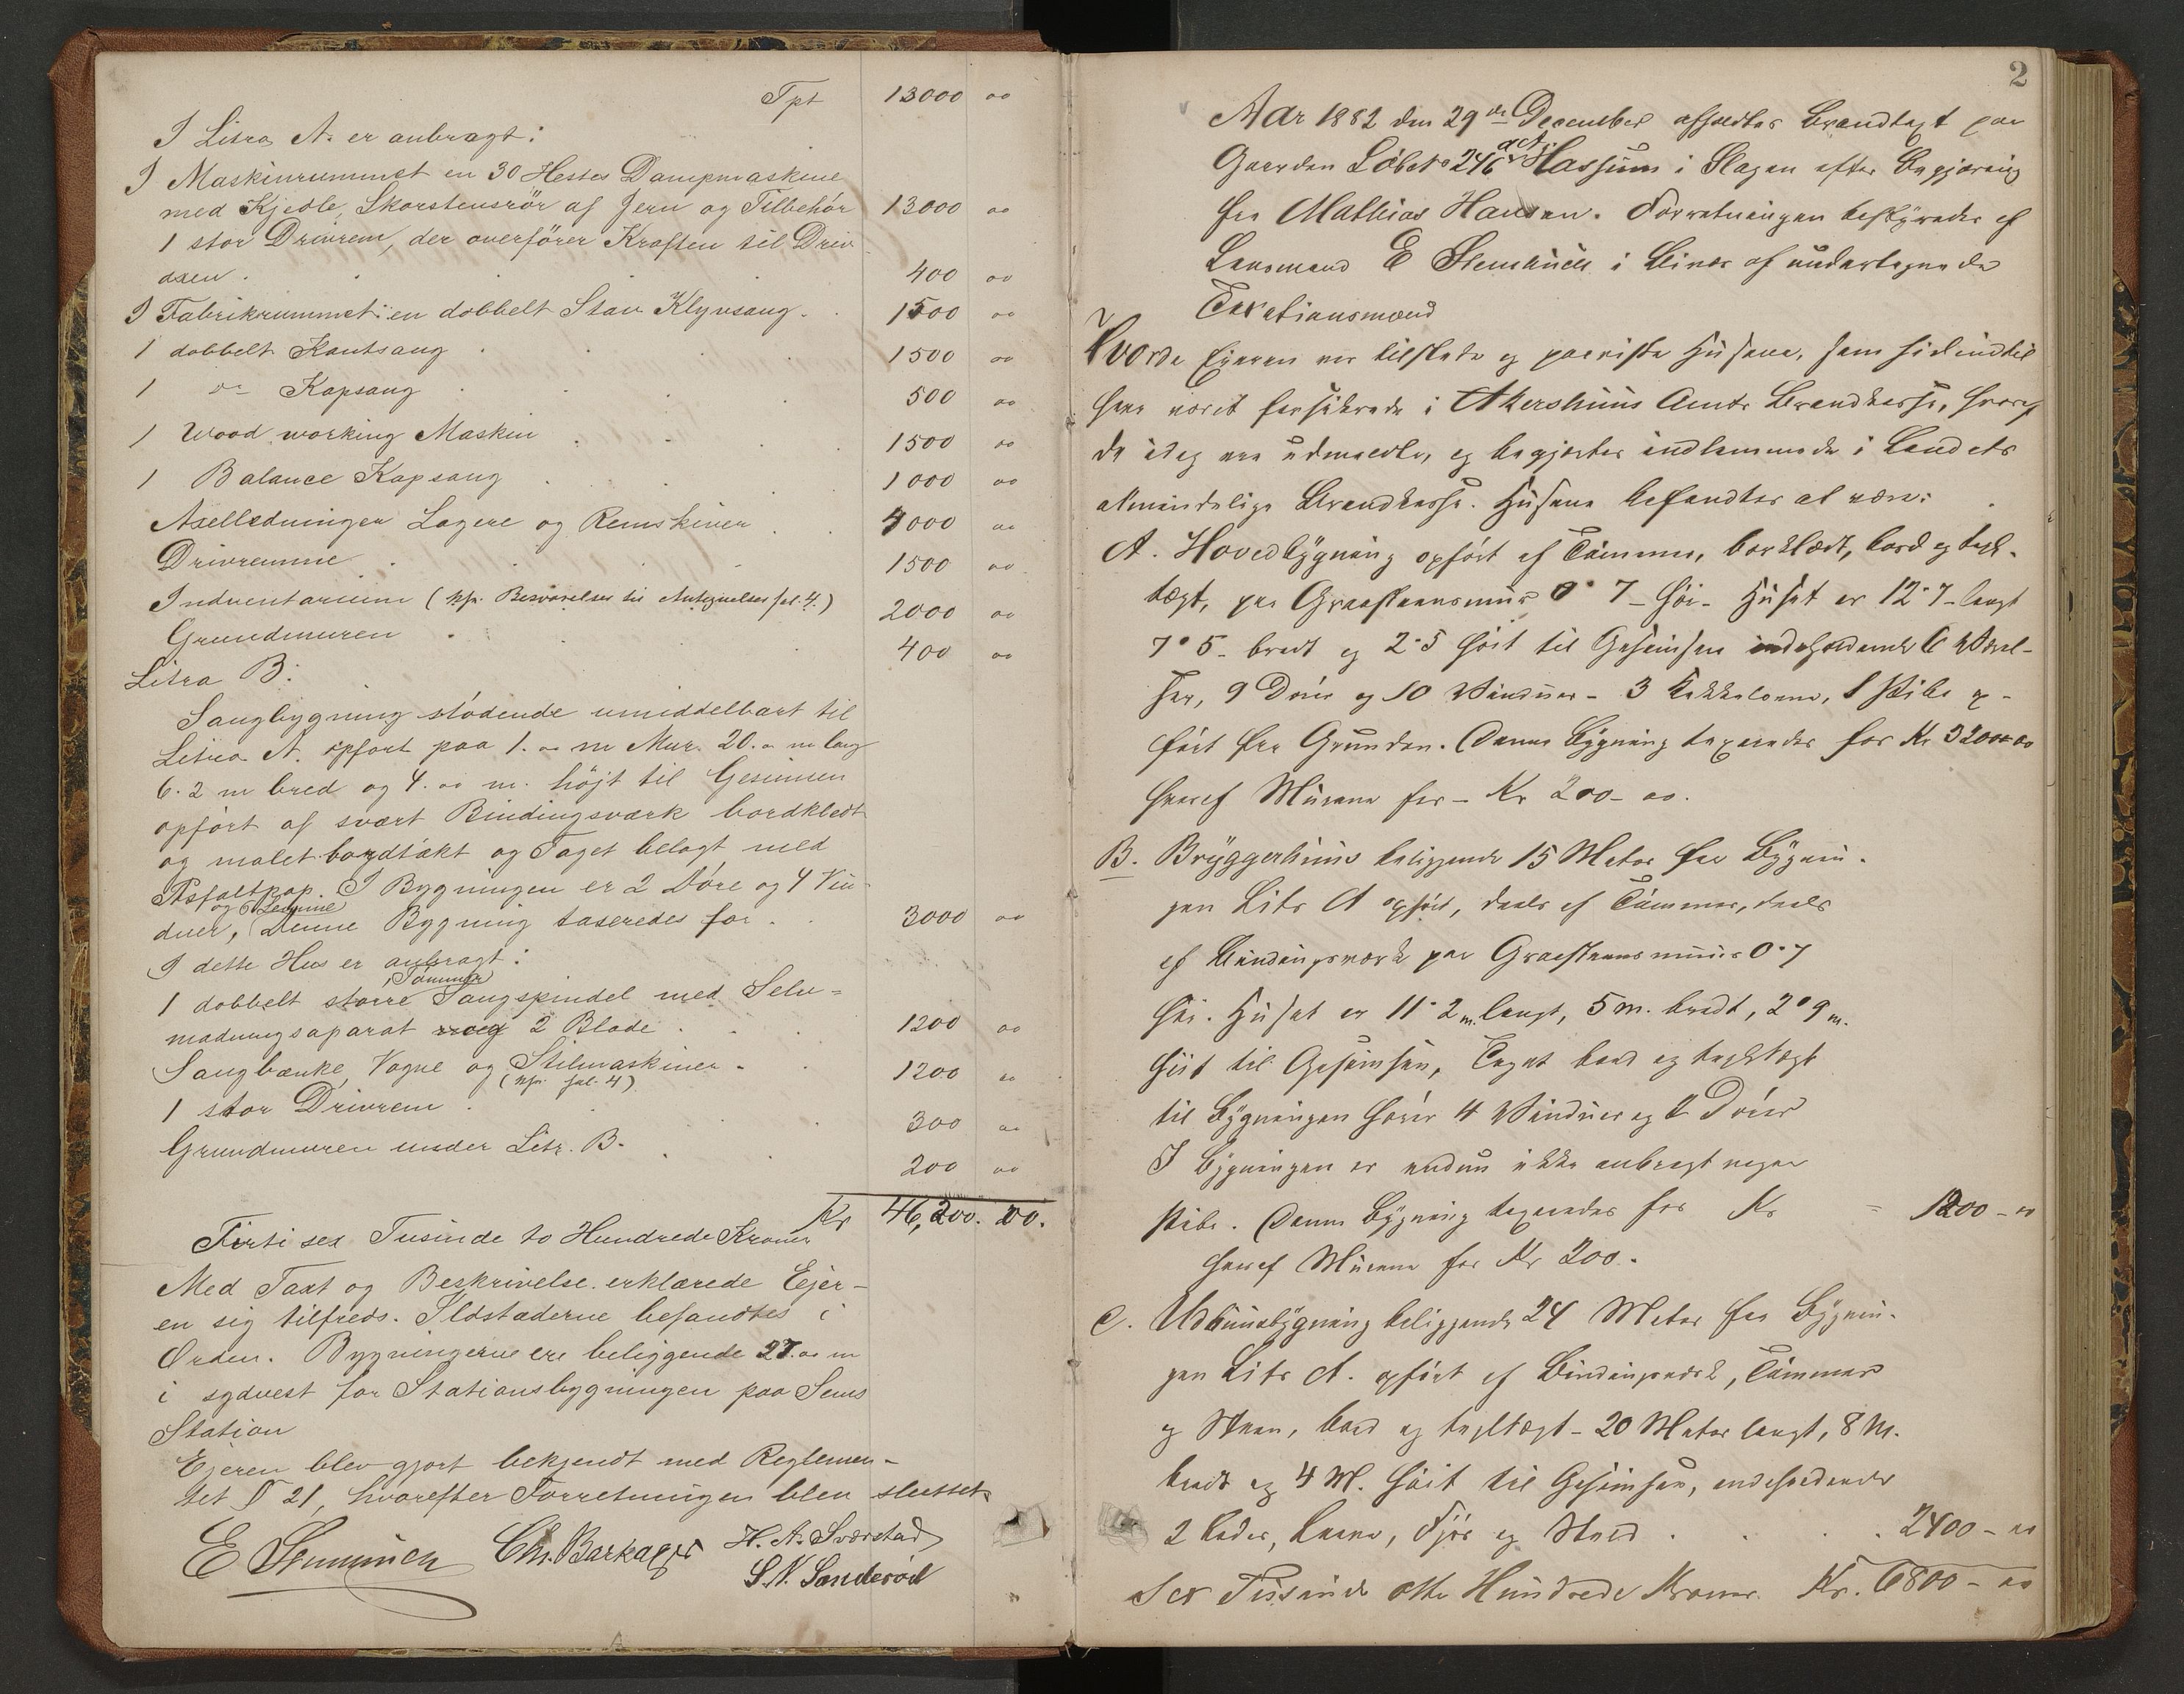 Tpt 13000 00
I Litra A. er anbragt:
I Maskinrummet en 30 Hestes Dampmaskine
med Kjedle, Skorstensrör af Jern og Tilbehör 13000 00
1 stor Drivrem, der overförer Kraften til Driv
axen . . . 400 00
I Fabrikrummet: en dobbelt Stav Klyvsaug . 1500 00
1 dobbelt Kantsaug . . . 1500 00
1 do Kapsaug . . . 500 00
1 Wood working Maskin . . . 1500 00
1 Balance Kapsaug . . . 1000 00
Axelledninger Lagere og Remskiver . . 4000 00
Drivremme . . . 1500 00
Indventarium (kfr. Besvarelser til Antegnelser fol. 4.) 2000 00
Grundmuren . . . 400 00
Litra B:
Saugbygning stödende umiddelbart til
Litra A. opfört paa 1.00 m Mur. 20.00 m lang
6.2 m bred og 4.00 m. höjt til Gesimsen
opfört af svært Bindingsværk bordklædt
og malet bordtækt og Taget belagt med
Asfaltpap. I Bygningen er 2 Döre og 4 Vin-
og 6 Lemme
duer, Denne Bygning taxeredes for . . 3000 00
I dette Hus er anbragt:
Tömmer
1 dobbelt större Saugspindel med Selv=
madningsaparat 2 Blade . . 1200 00
Saugbænke, Vogne og Stilmaskiner . 1200 00
(kfr. fol. 4)
1 stor Drivrem . . . 300 00
Grundmuren under Litr. B. . . 200 00
Kr 46,200. 00.
Firti sex Tusinde to Hundrede Kroner
Med Taxt og Beskrivelse erklærede Ejer-
en sig tilfreds. Ildstæderne befandtes i
Orden. Bygningerne ere beliggende 27.00 m
i sydvest for Stationsbygningen paa Sems
Station
Ejeren blev gjort bekjendt med Reglemen-
tet § 21, hvorefter Forretningen blev sluttet.
E Stenmich Chr. Barkager H. A. Sværstad
S. N. Sanderöd
2
Aar 1882 den 29de December afholdtes Brandtaxt paa
Gaarden Löbe No 246 Hassum i Slagen efter Begjæring
fra Mathias Hansen. Forretningen bestyredes af
Lensmand E Stenmich i Bivær af undertegnede
Taxationsmænd
Hvorda Ejeren var tilstede og paaviste Husene, som hidindtil
have været forsikrede i Akershuus Amts Brandkasse, hvoraf
de idag ere udmeldte, og begjærtes indlemmede i Landets
almindelige Brandkasse. Husene befandtes at være:
A. Hovedbygning opfört af Tömmer, bordklædt, bord og tegl-
tægt, paa Graasteensmuur 0.7 höi. Huset er 12.7 langt
7.5 bredt og 2.5 höit til Gesimsen indeholdende 6 Værel-
ser, 9 Döre og 10 Vinduer - 3 Kakkelovne, 1 Pibe op-
fört fra Grunden. Denne Bygning taxeredes for Kr 3200 00
hvoraf Murene for - Kr 200 - 00.
B. Bryggerhuus beliggende 15 Meter fra Bygnin-
gen Litr A opfört, deels af Tömmer, deels
af Bindingsværk paa Graasteensmuur 0.7
höi. Huset er 11.2 m. langt, 5 m. bredt, 2.9 m.
höit til Gesimsen, Taget bord og tegltægt
til Bygningen hörer 4 Vinduer og 2 Döre
I Bygningen er endnu ikke anbragt nogen
Pibe. Denne Bygning taxeredes for Kr = 1200 - 00
hvoraf Murene for Kr 200.
C. Udhuusbygning beliggende 24 Meter fra Bygnin-
gen Litr A. opfört af Bindingsværk, Tömmer
og Steen, bord og tegltægt - 20 Meter langt, 8 M.
bredt og 4 M. höit til Gesimsen, indeholdende
2 Lader, Laave, Fjös og Stald . . . 2400 - 00
Sex Tusinde otte Hundrede Kroner. Kr. 6800 - 00